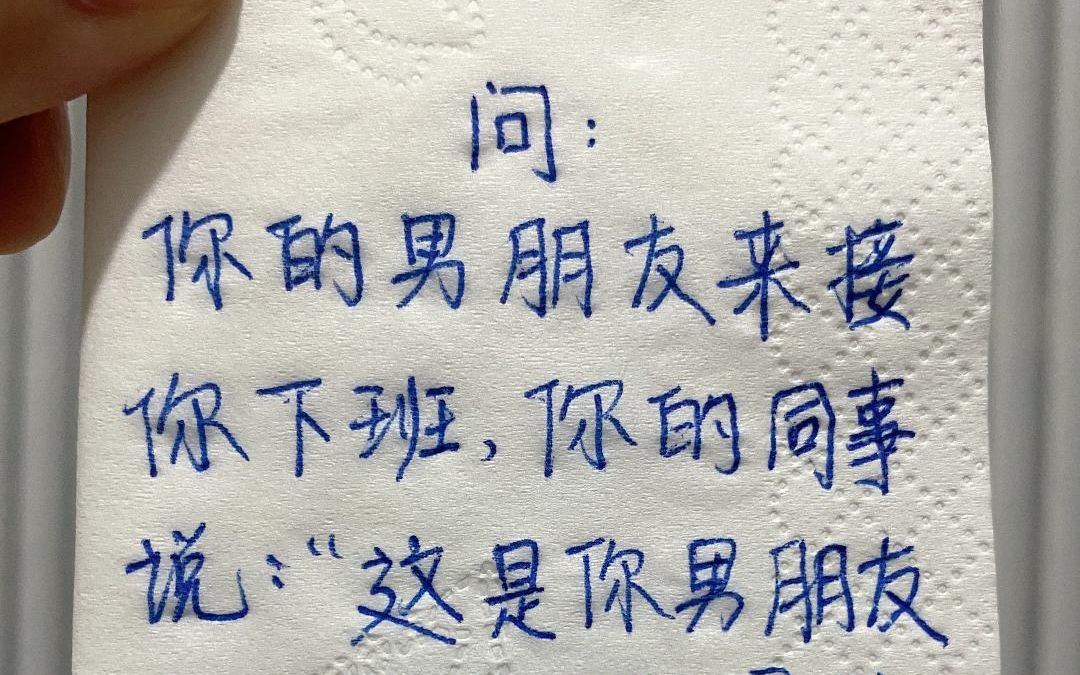 问：
你的男朋友来接
你下班，你的同事
说：“这是你男朋友